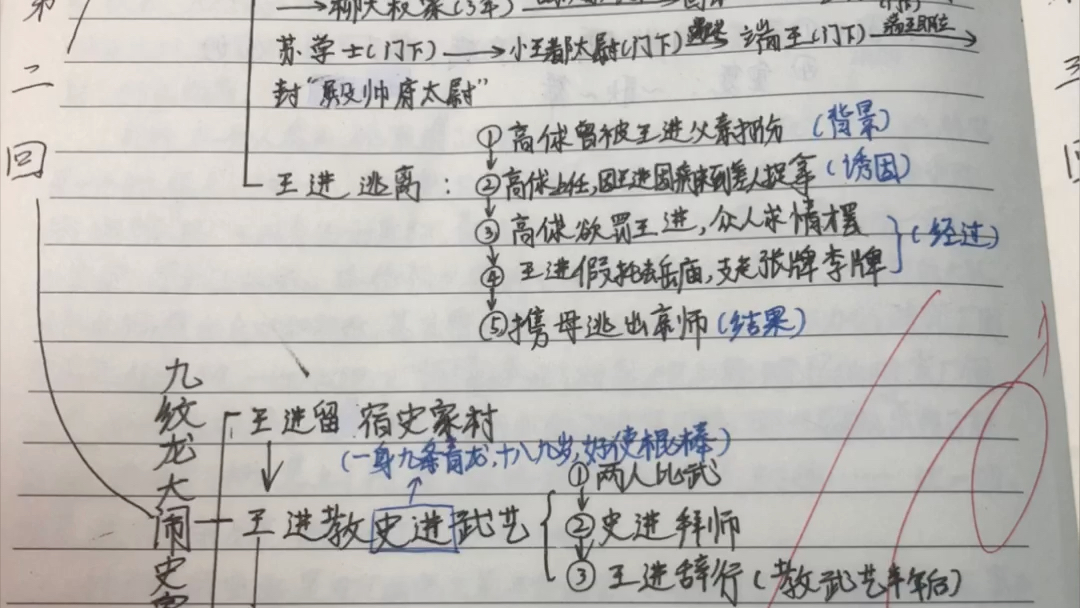 第二回
苏学士(门下)→小王都太尉(门下)→端王(门下)→
封“殿帅府太尉”
王进逃离：
①高俅曾被王进父亲打伤 (背景)
②高俅上任,因王进因病未到差人捉拿 (诱因)
③高俅欲罚王进,众人求情
④王进假托去岳庙,支走张牌李牌
(经过)
⑤携母逃出京师(结果)
九纹龙大闹史家
王进留宿史家村
(一身九条青龙,十八九岁,好使棍棒)
王进教史进武艺
①两人比武
②史进拜师
③王进辞行(教武艺半年后)